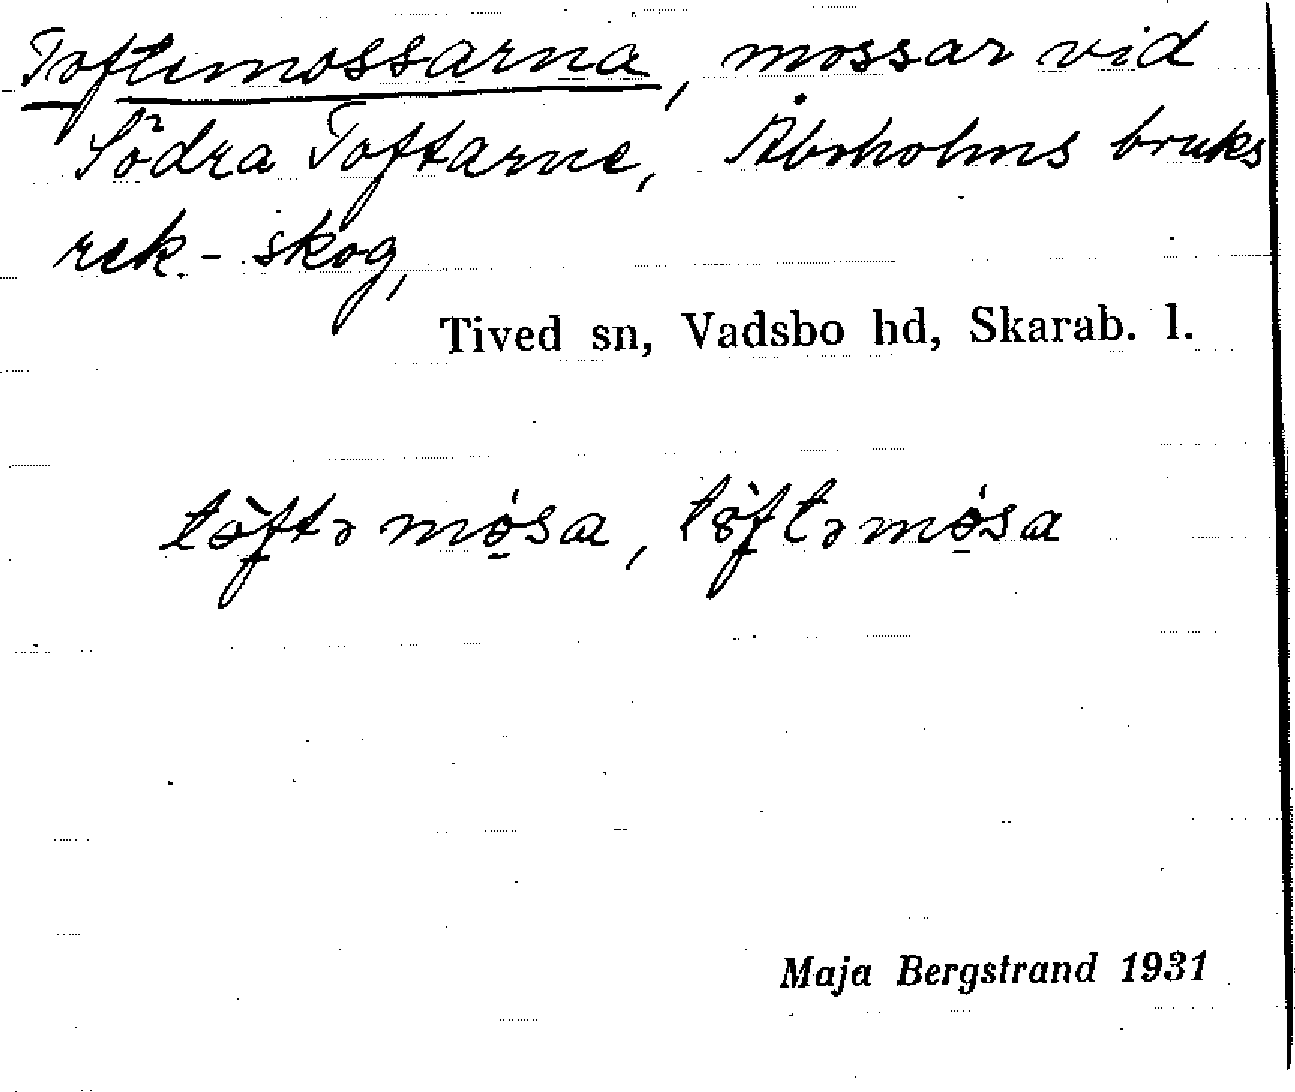 Toftemossarna, mossar vid
Södra Toftarne, Åboholms bruks
rek.- skog,
Tived sn, Vadsbo hd, Skarab. l.
tòftə mǫ́sa, tòftəmǫ́sa
Maja Bergstrand 1931